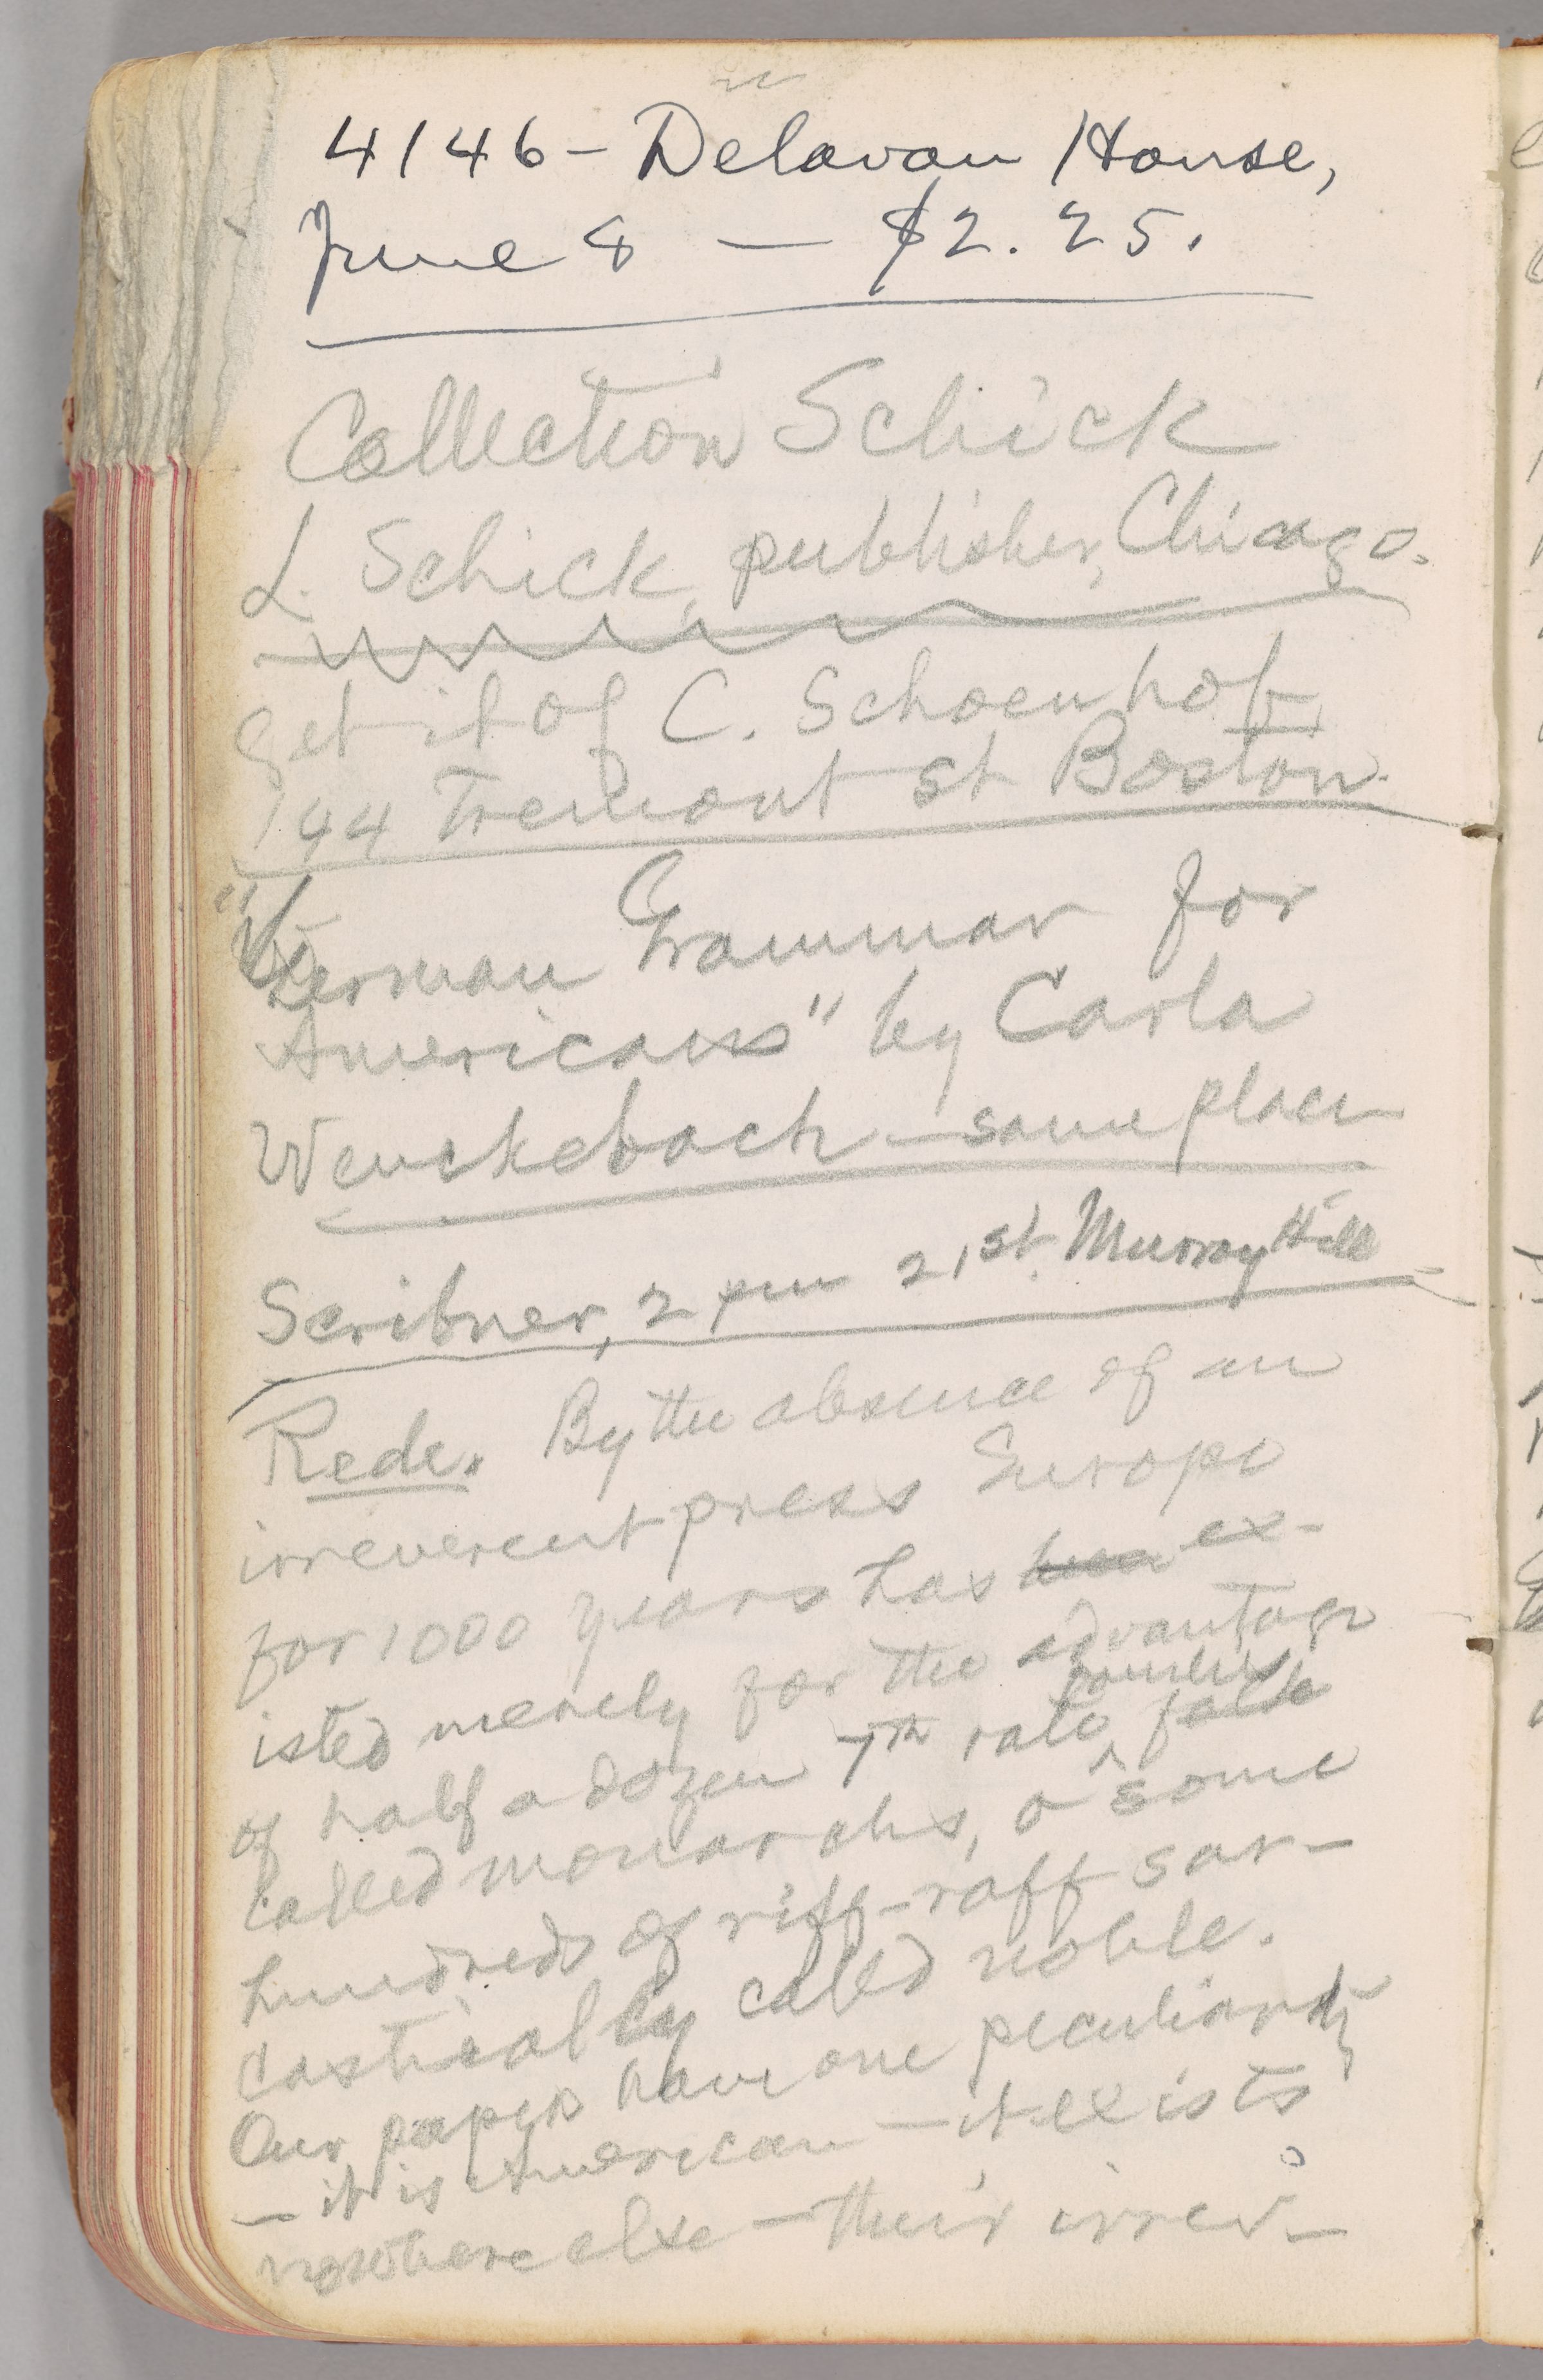 4146 - Delavan House,
June 8 — $2.25.
Collection Schick
L. Schick, publisher, Chicago.
get it of C. Schoenhof,
144 Tremont st Boston.
"German Grammar for
Americans" by Carla
Wenckebach — same place
Scribner, 2 pm 21st. Murray Hill
Rede. By the absence of an
irreverent press Europe
for 1000 years has been ex-
isted merely for the advantage
of half a dozen 7th rate families
called monarchs, & some
hundreds of riff-raff sar-
castically called noble.
Our papers have one peculiarity
— it is American — it exists
nowhere else — their irrev-